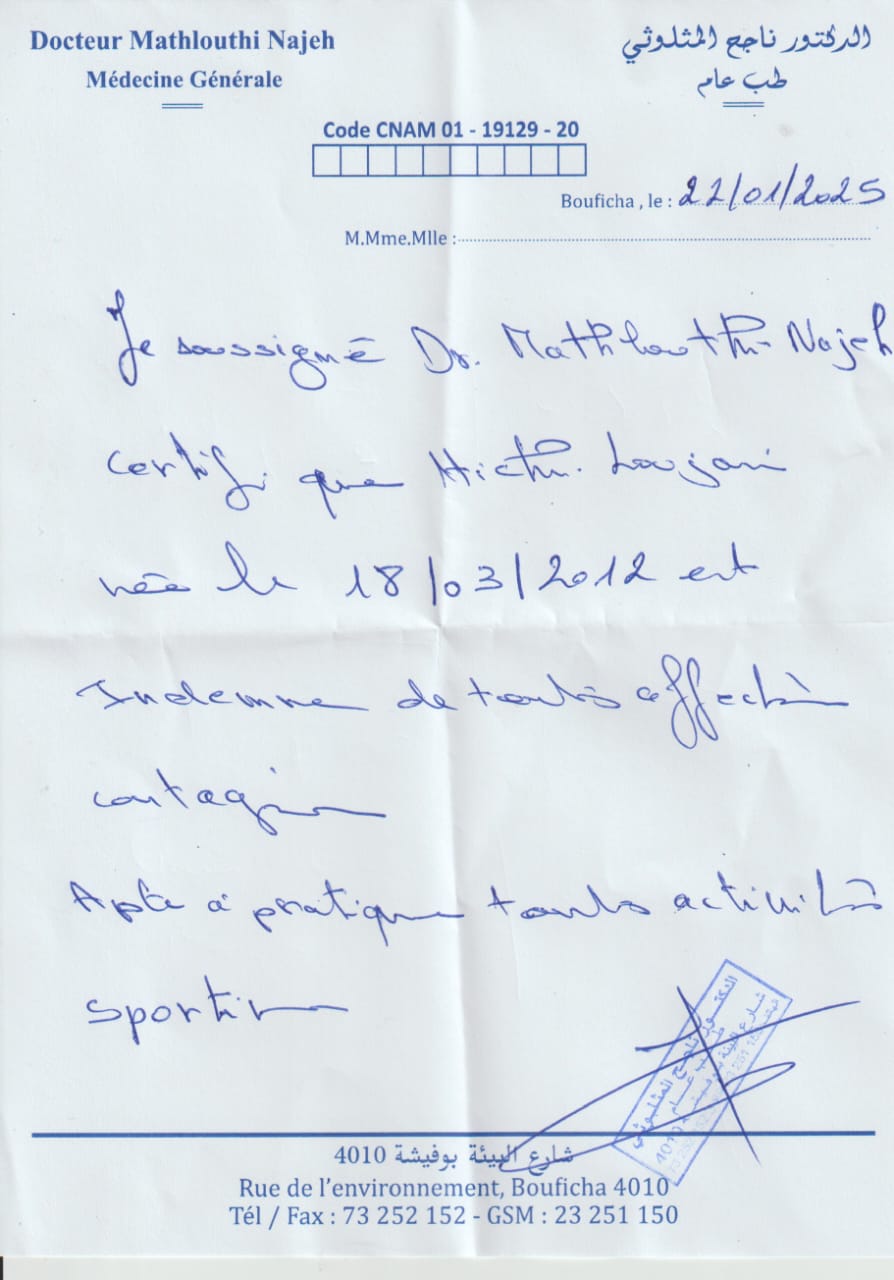 Docteur Mathlouthi Najeh
Médecine Générale
الدكتور ناجح المثلوثي
طب عام
Code CNAM 01 - 19129 - 20
Bouficha , le : 22/01/2025
M.Mme.Mlle :
Je soussigné Dr. Mathlouthi Najeh
certifi que Hichri Loujani
née le 18/03/2012 est
Indemne de toutes affection
contagieuse
Apte à pratique toutes activités
sportive
الدكتور ناجح المثلوثي
طب عام
شارع البيئة بوفيشة 4010
73 252 152
شارع البيئة بوفيشة 4010
Rue de l'environnement, Bouficha 4010
Tél / Fax : 73 252 152 - GSM : 23 251 150